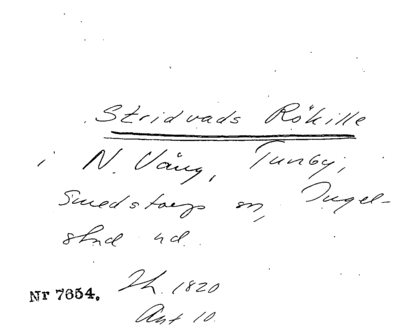 Stridvads Rökille
i N. Vång, Tunby,
Smedstorps sn, Ingel-
stad hd.
Nr 7654. Th. 1820
Ant 10.